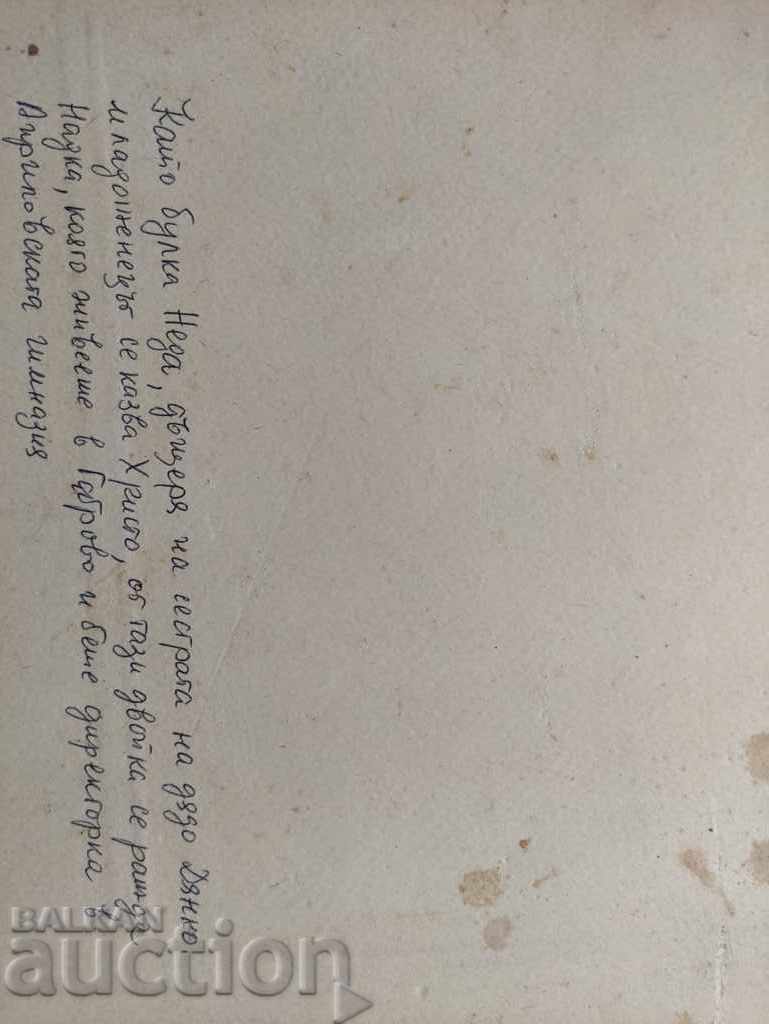 Като булка Неда, дъщеря на сестрата на дядо Дянко!
младоженецът се казва Христо, от тази двойка се ражда
Надка, която живееше в Габрово и беше директорка в
Априловската гимназия
BALKAN
auction